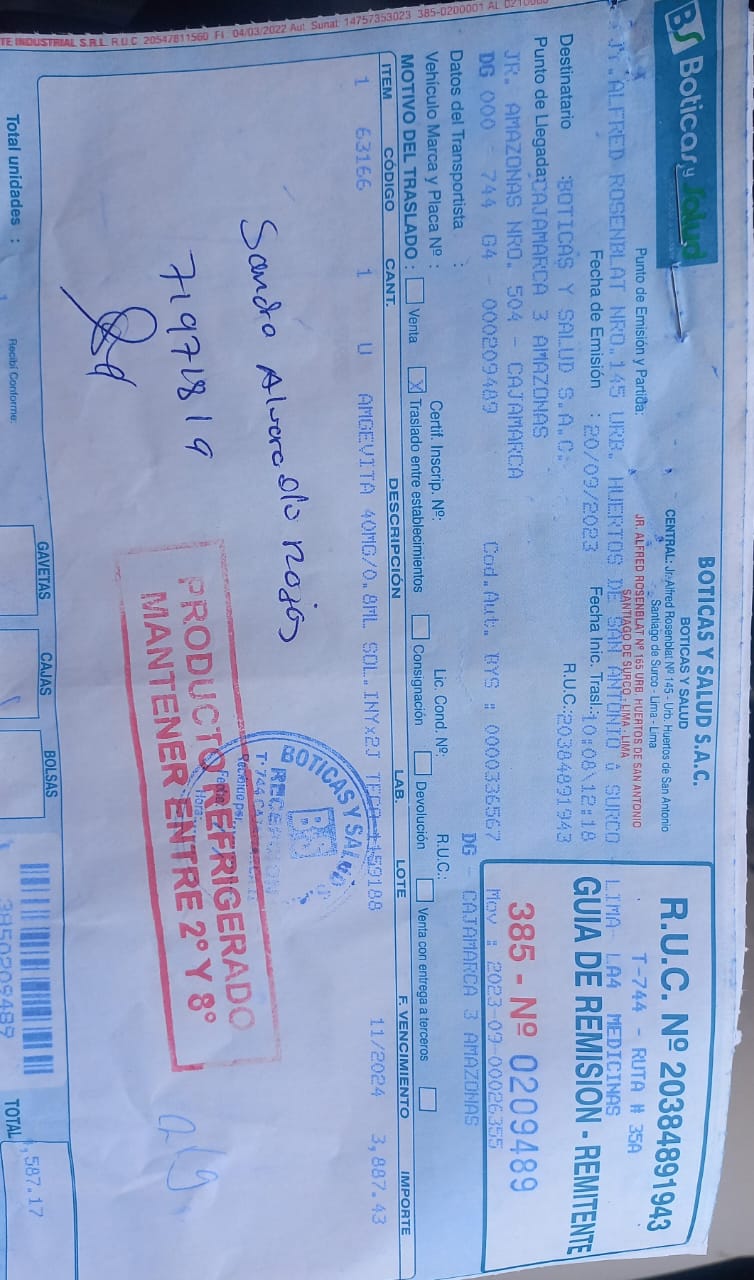 TE INDUSTRIAL S.R.L. R.U.C 20547811560 F.I. 04/03/2022 Aut. Sunat: 14757353023 385-0200001 AL
BS Boticas y Salud
BOTICAS Y SALUD S.A.C.
BOTICAS Y SALUD
CENTRAL: Jr. Alfred Rosenblat Nº 145 - Urb. Huertos de San Antonio
Santiago de Surco - Lima - Lima
JR. ALFRED ROSENBLAT Nº 165 URB. HUERTOS DE SAN ANTONIO
SANTIAGO DE SURCO - LIMA - LIMA
R.U.C. Nº 20384891943
T-744 - RUTA # 35A
GUIA DE REMISION - REMITENTE
385 - Nº 0209489
Punto de Emisión y Partida:
ALFRED ROSENBLAT NRO.145 URB. HUERTOS DE SAN ANTONIO SURCO LIMA- LA4 MEDICINAS
Fecha de Emisión : 20/09/2023 Fecha Inic. Trasl.: 10:08\12:18
Destinatario :BOTICAS Y SALUD S.A.C. R.U.C:20384891943
Punto de Llegada:CAJAMARCA 3 AMAZONAS
JR. AMAZONAS NRO. 504 - CAJAMARCA
DG 000 - 744 G4 - 000209489 Cod.Aut. BYS : 0000336567 Mov : 2023-09-00026355
DG - CAJAMARCA 3 AMAZONAS
Datos del Transportista :
Vehículo Marca y Placa Nº : Certif. Inscrip. Nº: Lic. Cond. Nº: R.U.C.:
MOTIVO DEL TRASLADO : Venta X Traslado entre establecimientos Consignación Devolución Venta con entrega a terceros
ITEM CÓDIGO CANT. DESCRIPCIÓN LAB. LOTE F. VENCIMIENTO IMPORTE
1 63166 1 U AMGEVITA 40MG/0.8ML SOL.INYx2J 1159188 11/2024 3,887.43
BOTICAS Y SALUD
BS
RECEPCION
Recibido por:
Fecha:
Hora:
Sandra Alvarado Rojas
71971819
PRODUCTO REFRIGERADO
MANTENER ENTRE 2° Y 8°
GAVETAS CAJAS BOLSAS
Total unidades : Recibí Conforme: 3850209489 TOTAL ,587.17